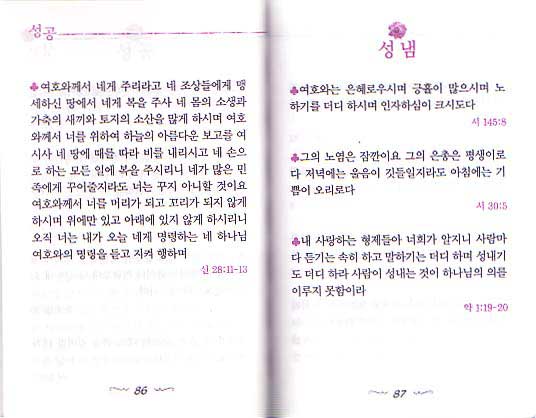 성공
♣여호와께서 네게 주리라고 네 조상들에게 맹
세하신 땅에서 네게 복을 주사 네 몸의 소생과
가축의 새끼와 토지의 소산을 많게 하시며 여호
와께서 너를 위하여 하늘의 아름다운 보고를 여
시사 네 땅에 때를 따라 비를 내리시고 네 손으
로 하는 모든 일에 복을 주시리니 네가 많은 민
족에게 꾸어줄지라도 너는 꾸지 아니할 것이요
여호와께서 너를 머리가 되고 꼬리가 되지 않게
하시며 위에만 있고 아래에 있지 않게 하시리니
오직 너는 내가 오늘 네게 명령하는 네 하나님
여호와의 명령을 듣고 지켜 행하며
신 28:11-13
86
성냄
♣여호와는 은혜로우시며 긍휼이 많으시며 노
하기를 더디 하시며 인자하심이 크시도다
시 145:8
♣그의 노염은 잠깐이요 그의 은총은 평생이로
다 저녁에는 울음이 깃들일지라도 아침에는 기
쁨이 오리로다
시 30:5
♣내 사랑하는 형제들아 너희가 알지니 사람마
다 듣기는 속히 하고 말하기는 더디 하며 성내기
도 더디 하라 사람이 성내는 것이 하나님의 의를
이루지 못함이라
약 1:19-20
87